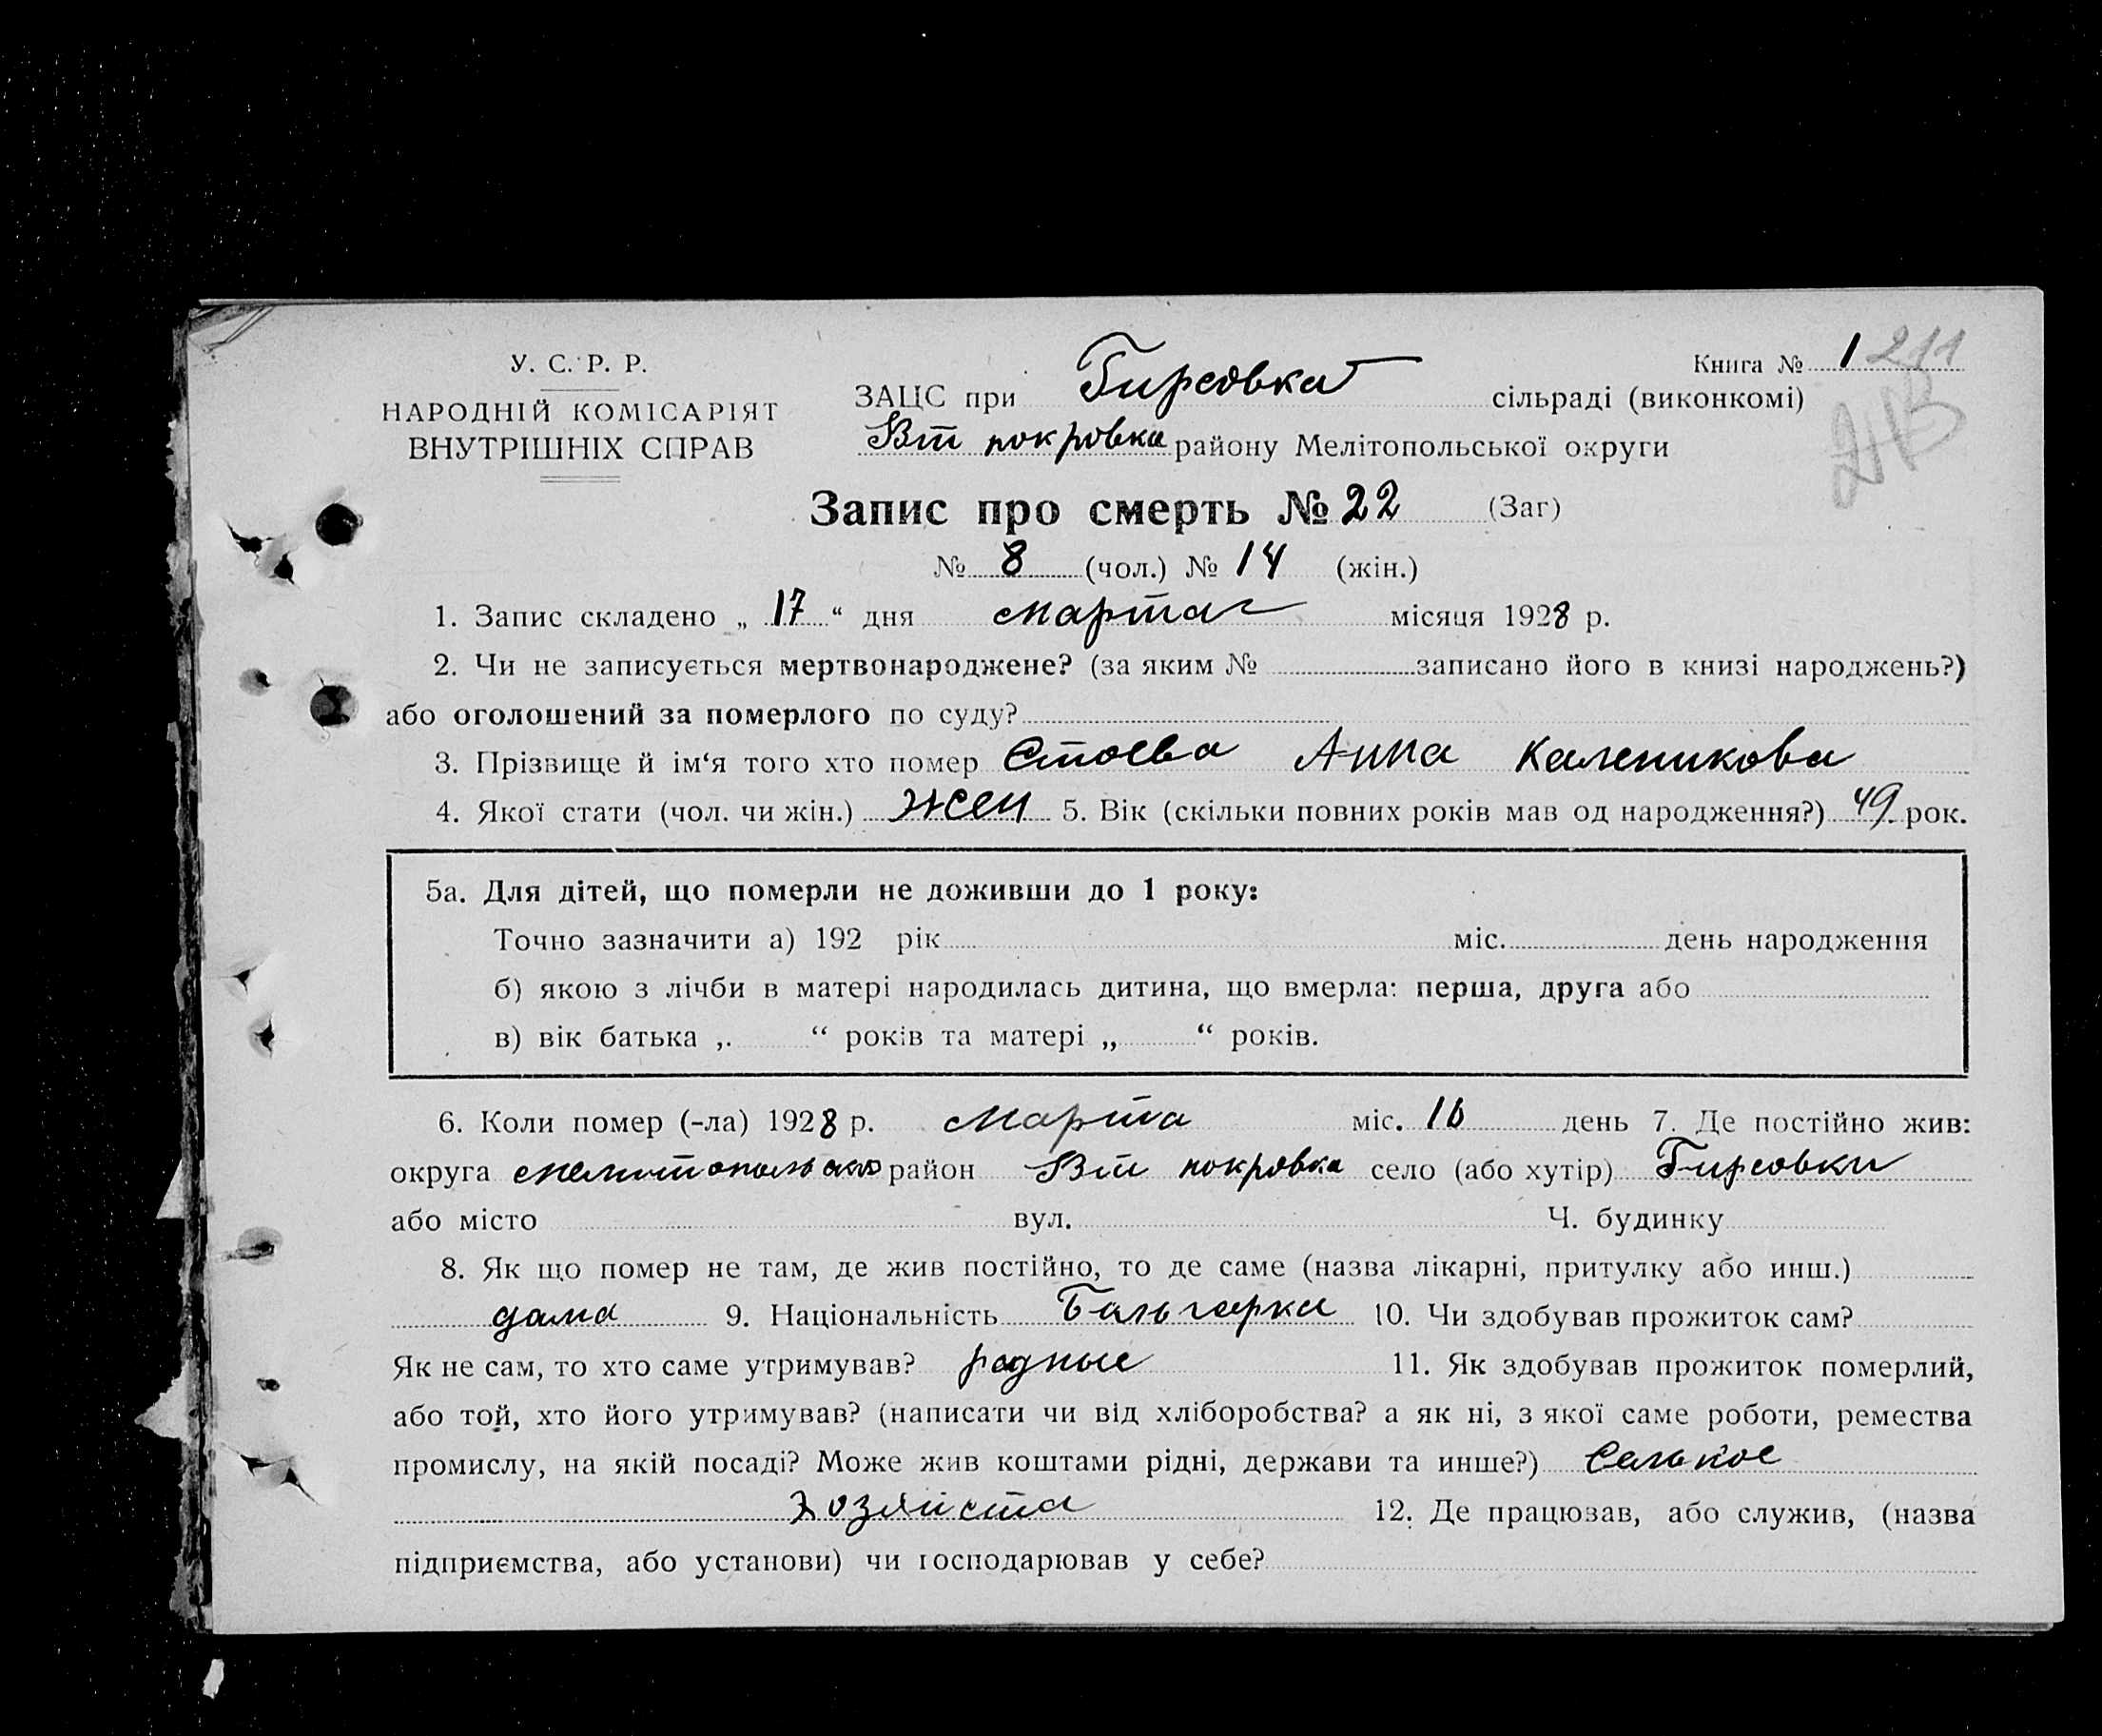 У. С. Р. Р.
НАРОДНІЙ КОМІСАРІЯТ
ВНУТРІШНІХ СПРАВ
Книга № 1 211
ЗАЦС при Гирсовка сільраді (виконкомі)
Вт покровка району Мелітопольської округи
Запис про смерть № 22 (Заг)
№ 8 (чол.) № 14 (жін.)
1. Запис складено „ 17 “ дня марта місяця 1928 р.
2. Чи не записується мертвонароджене? (за яким № записано його в книзі народжень?)
або оголошений за померлого по суду?
3. Прізвище й ім‘я того хто помер Стоева Анна Каленикова
4. Якої стати (чол. чи жін.) жен 5. Вік (скільки повних років мав од народження?) 49 рок.
5а. Для дітей, що померли не доживши до 1 року:
Точно зазначити а) 192 рік міс. день народження
б) якою з лічби в матері народилась дитина, що вмерла: перша, друга або
в) вік батька „ “ років та матері „ “ років.
6. Коли помер (-ла) 1928 р. марта міс. 16 день 7. Де постійно жив:
округа район Вт покровка село (або хутір) Гирсовки
або місто вул. Ч. будинку
8. Як що помер не там, де жив постійно, то де саме (назва лікарні, притулку або инш.)
дома 9. Національність Бальгарка 10. Чи здобував прожиток сам?
Як не сам, то хто саме утримував? родные 11. Як здобував прожиток померлий,
або той, хто його утримував? (написати чи від хліборобства? а як ні, з якої саме роботи, ремества
промислу, на якій посаді? Може жив коштами рідні, держави та инше?) Селькое
хозяиста 12. Де працював, або служив, (назва
підприємства, або установи) чи господарював у себе?